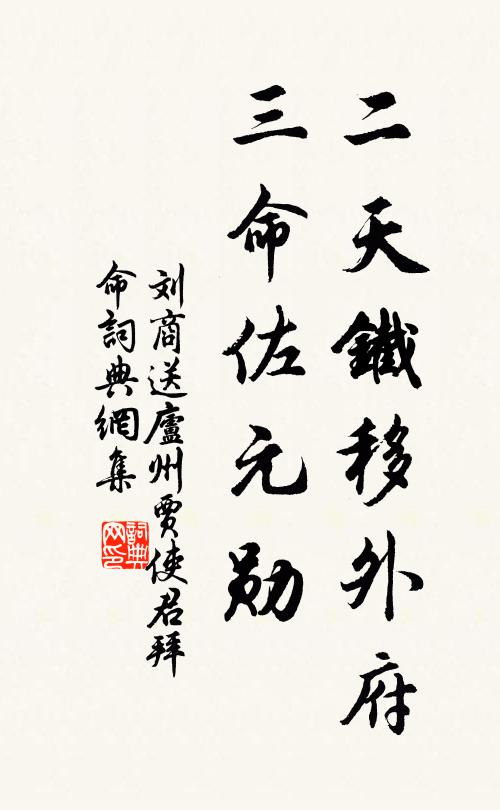 二天鐵移外府
三命佐元勋
刘商送廬州賈使君拜
命詞典網集
詞典网印